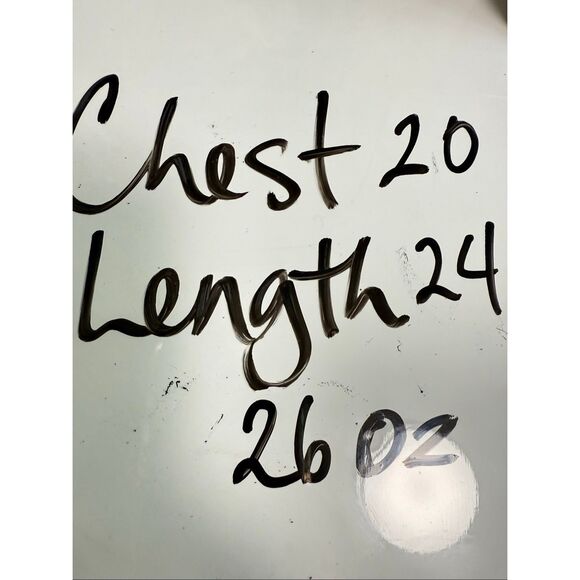 Chest 20
Length 24
26 Oz